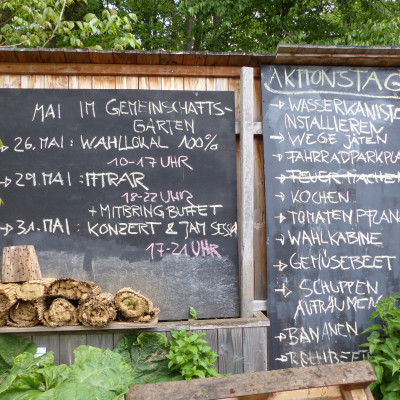 MAI IM GEMEINSCHAFTS-
GÄRTEN
→ 26. MAI: WAHLLOKAL 100%
10-17 UHR
→ 29. MAI: IFTRAR
18-22 UHR
+ MITBRINGBUFFET
→ 31. MAI: KONZERT & JAM SESSI
17-21 UHR
AKTIONSTAG
→ WASSERKANISTE
INSTALLIEREN
→ WEGE JÄTEN
→ FAHRRADPARKPLA
→ FEUER MACHEN
→ KOCHEN
→ TOMATEN PFLAN
→ WAHLKABINE
→ GEMÜSEBEET
→ SCHUPPEN
AUFRÄUMEN
→ BANANEN